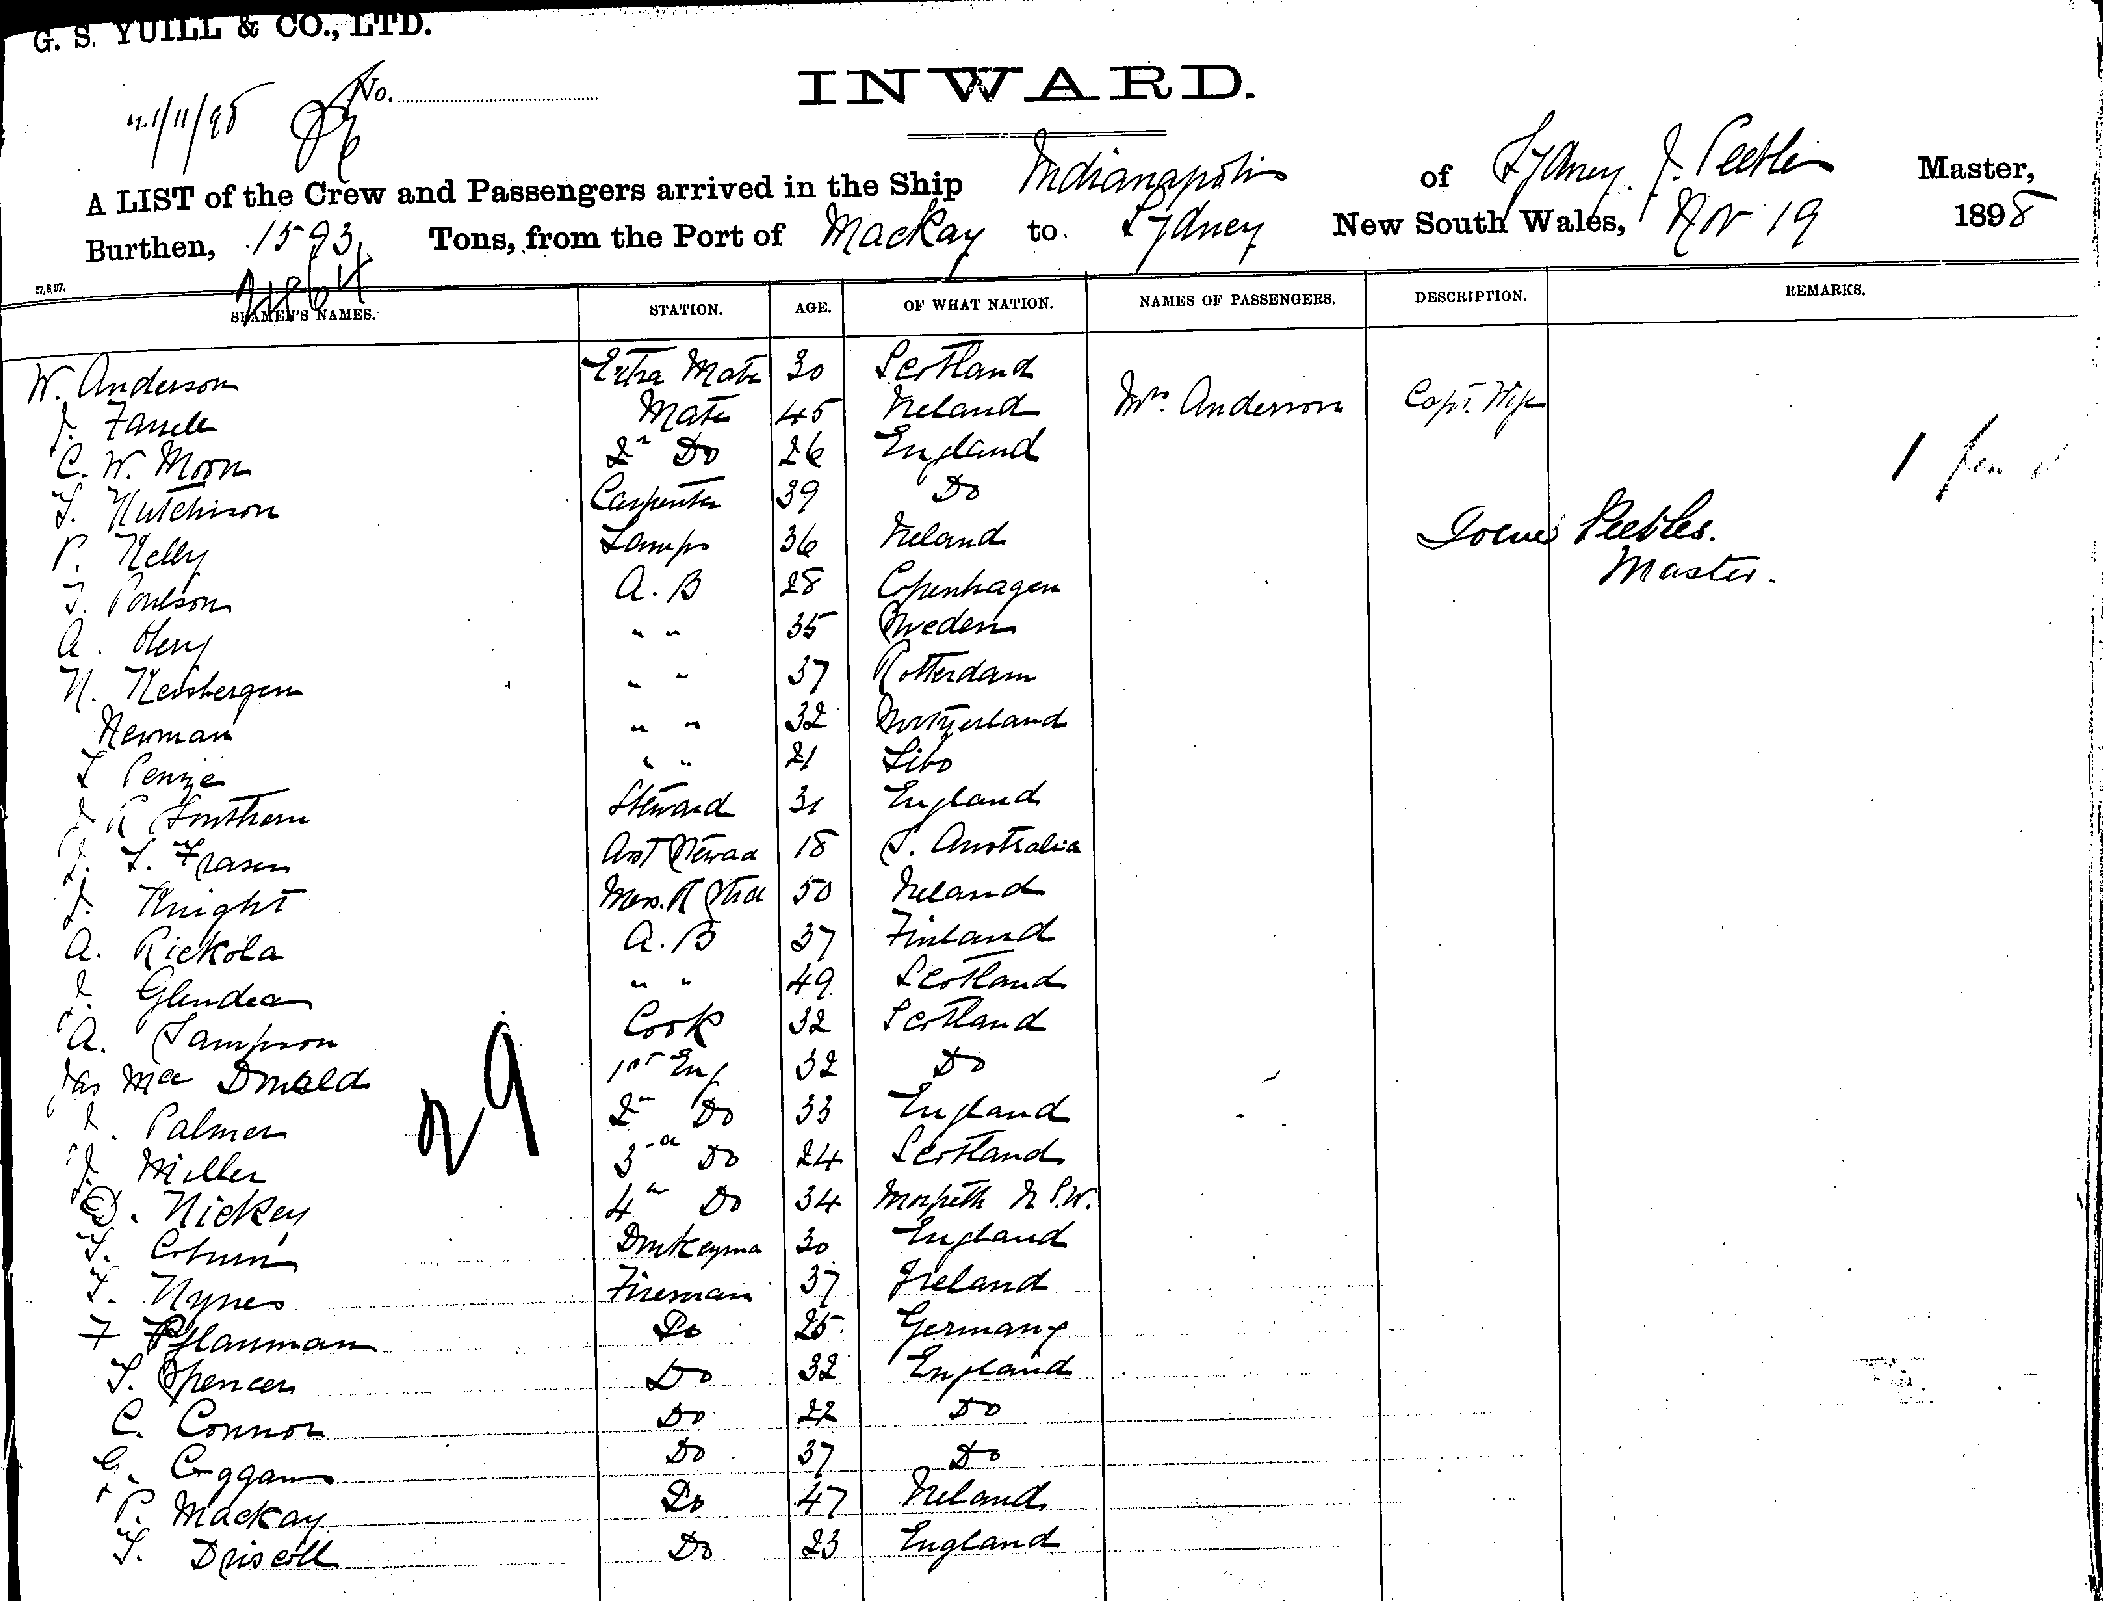 G. S. YUILL & CO., LTD.
No.
21/11/98
INWARD.
A LIST of the Crew and Passengers arrived in the Ship Indianapolis of Sydney. J. Peebles Master,
Burthen, 1593 Tons, from the Port of Mackay to Sydney New South Wales, Nov 19 1898
SEAMEN'S NAMES. STATION. AGE. OF WHAT NATION. NAMES OF PASSENGERS. DESCRIPTION. REMARKS.
W. Anderson Extra Mate 30 Scotland
J. Mate 45 Ireland Mrs. Anderson Capt. Wife
C. W. Moon 2n Do 26 England
1
T. Hutchison Carpenter 39 Do
P. Kelly Lamps 36 Ireland Peebles.
Master.
T. Poulson A. B 28 Copenhagen
A. " " 35 Sweden
N. " " 37 Rotterdam
Newman " " 32 Switzerland
" " 21 Libo
J R Southern Steward 31 England
J. S. Fraser Asst Steward 18 S. Australia
J. Knight Mess. R Std 50 Ireland
A. Rickola A. B 37 Finland
J. " " 49 Scotland
A. Sampson Cook 32 Scotland
Jas Mac Donald 1st Eng 32 Do
29
J. Palmer 2n Do 33 England
J. Miller 3rd Do 24 Scotland
D. Hickey 4th Do 34 Morpeth N.S.W.
T. Donkeyma 30 England
T. Hynes Fireman 37 Ireland
F Pflauman Do 25 Germany
T. Spencer Do 32 England
C. Connor Do 22 Do
G. Coggans Do 37 Do
P. Mackay Do 47 Ireland
T. Driscoll Do 23 England